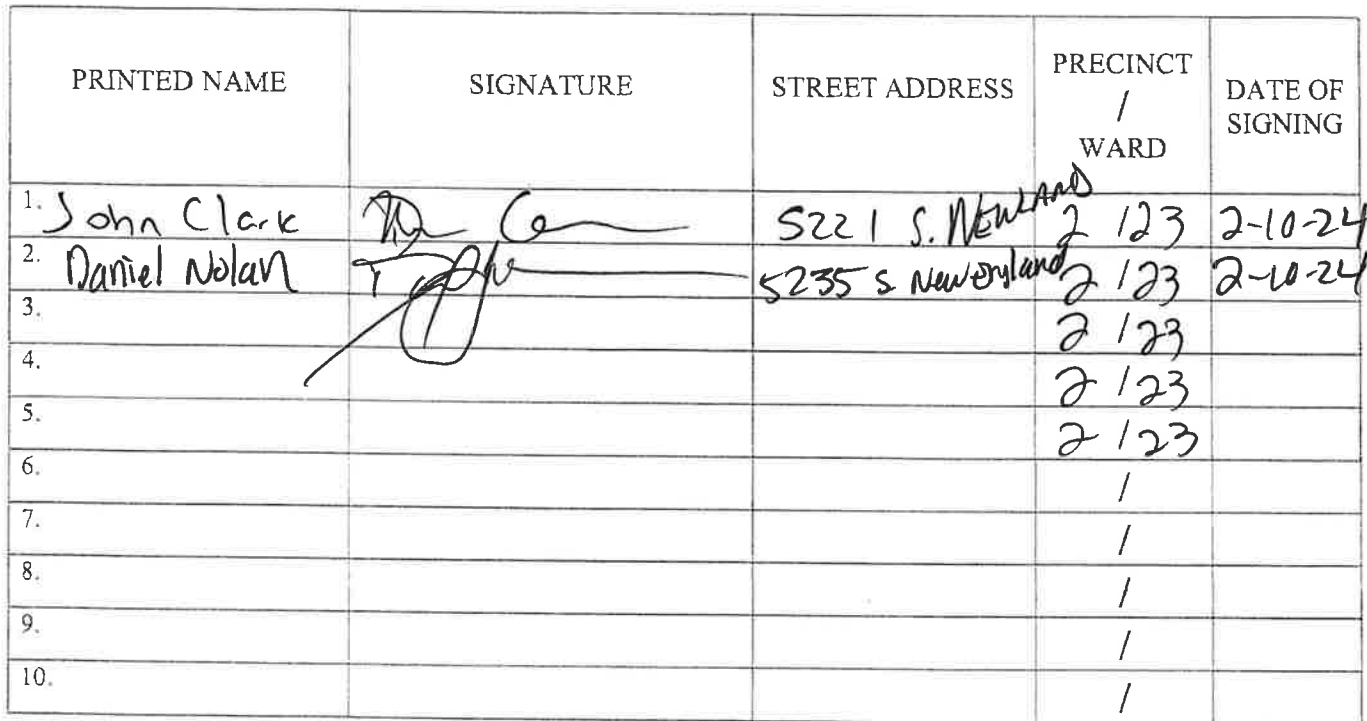 PRINTED NAME SIGNATURE STREET ADDRESS PRECINCT / WARD DATE OF SIGNING
1. John Clark 5221 S. NEWLAND 2 / 23 2-10-24
2. Daniel Nolan 5235 S New England 2 / 23 2-10-24
3. 2 / 23
4. 2 / 23
5. 2 / 23
6. /
7. /
8. /
9. /
10. /